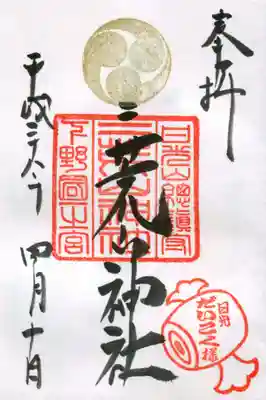 奉拝
二荒山神社
日光山總鎮守
下野國一之宮
日光
だいこく様
平成二八年
四月十日